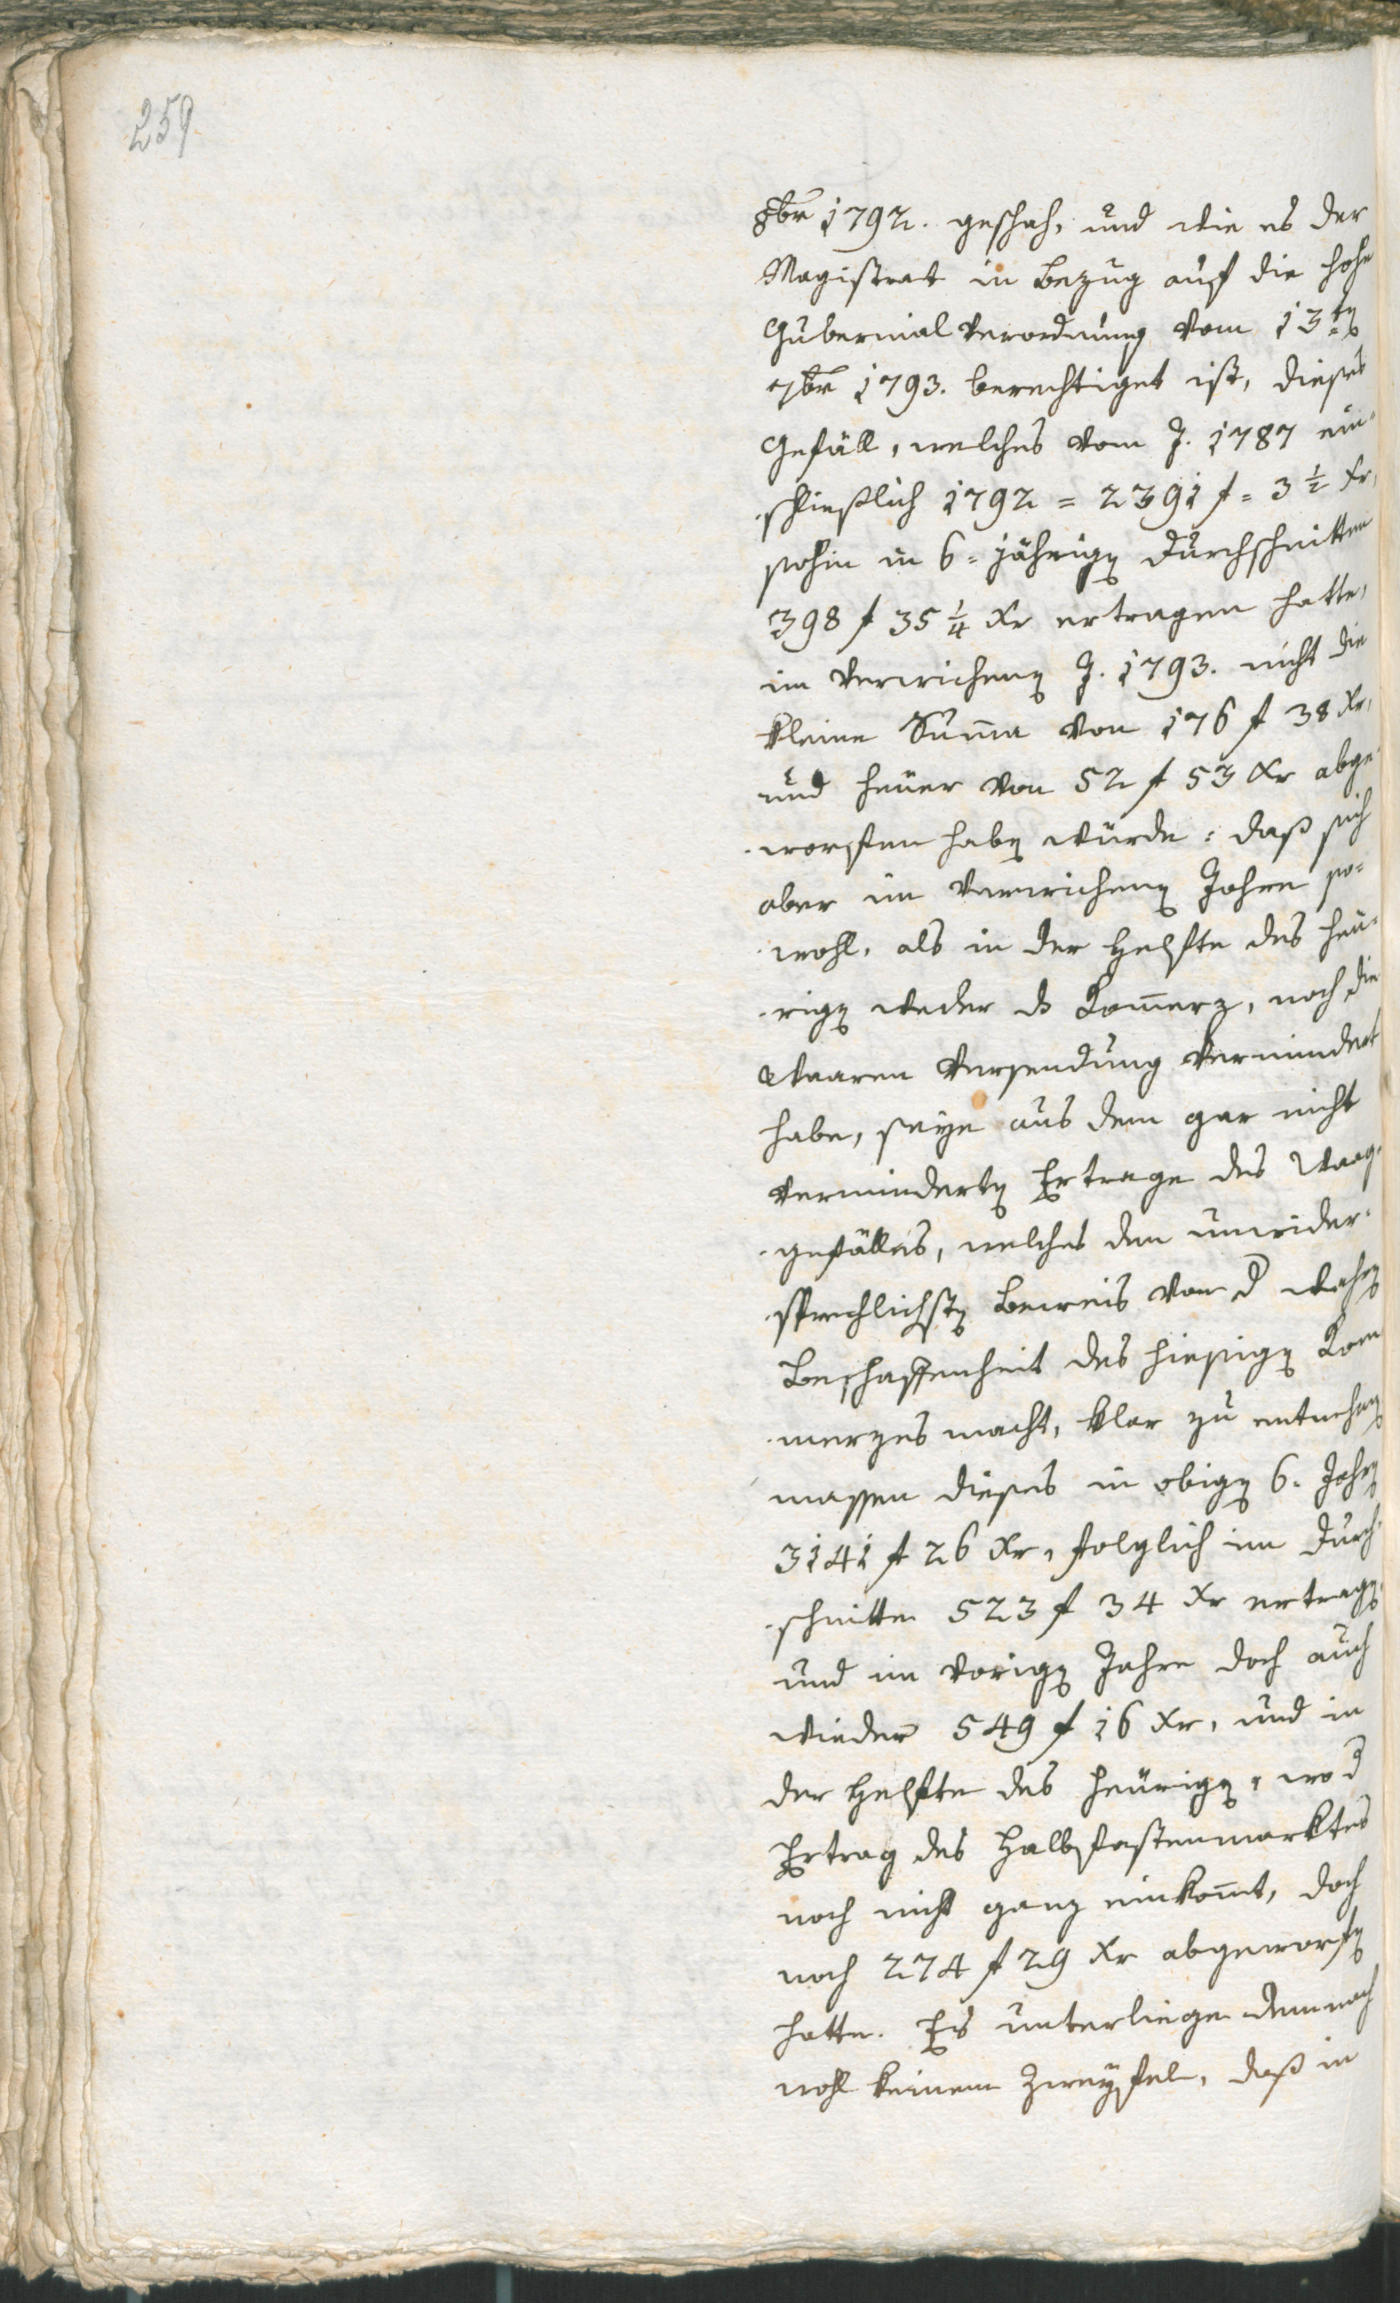 259
8br 1792. geschah, und wie es der
Magistrat in Bezug auf die hohe
Gubernial Verordnung vom 13ten
7br 1793. berechtiget ist, dieses
Gefäll, welches vom J. 1787 ein-
schließlich 1792 = 2391 f = 3 ½ Xr,
sohin in 6 = jährigen Durchschnitten
398 f 35 ¼ Xr ertragen hatte,
im verwichenen J. 1793. nicht die
kleine Summa von 176 f 38 Xr,
und heuer von 52 f 53 Xr abge-
worfen haben würde: daß sich
aber im verwichenen Jahre so=
wohl, als in der Helfte des heu-
rigen weder ds Kommerz, noch die
Waaren Versendung vermindert
habe, seye aus dem gar nicht
verminderten Ertrage des Waag-
gefälles, welches den unwider-
sprechlichsten Beweis von d wahren
Beschaffenheit des hiesigen Kom
merzes macht, klar zu entnehmen
massen dieses in obigen 6. Jahren
3141 f 26 Xr, folglich im Durch-
schnitte 523 f 34 Xr ertragen
und im vorigen Jahre doch auch
wieder 549 f 16 Xr, und in
der Helfte des heurigen, wo d
Ertrag des Halbfastenmarktes
noch nicht ganz einkommt, doch
noch 274 f 29 Xr abgeworfen
hatte. Es unterliege demnach
wohl keinem Zweyfel, daß in